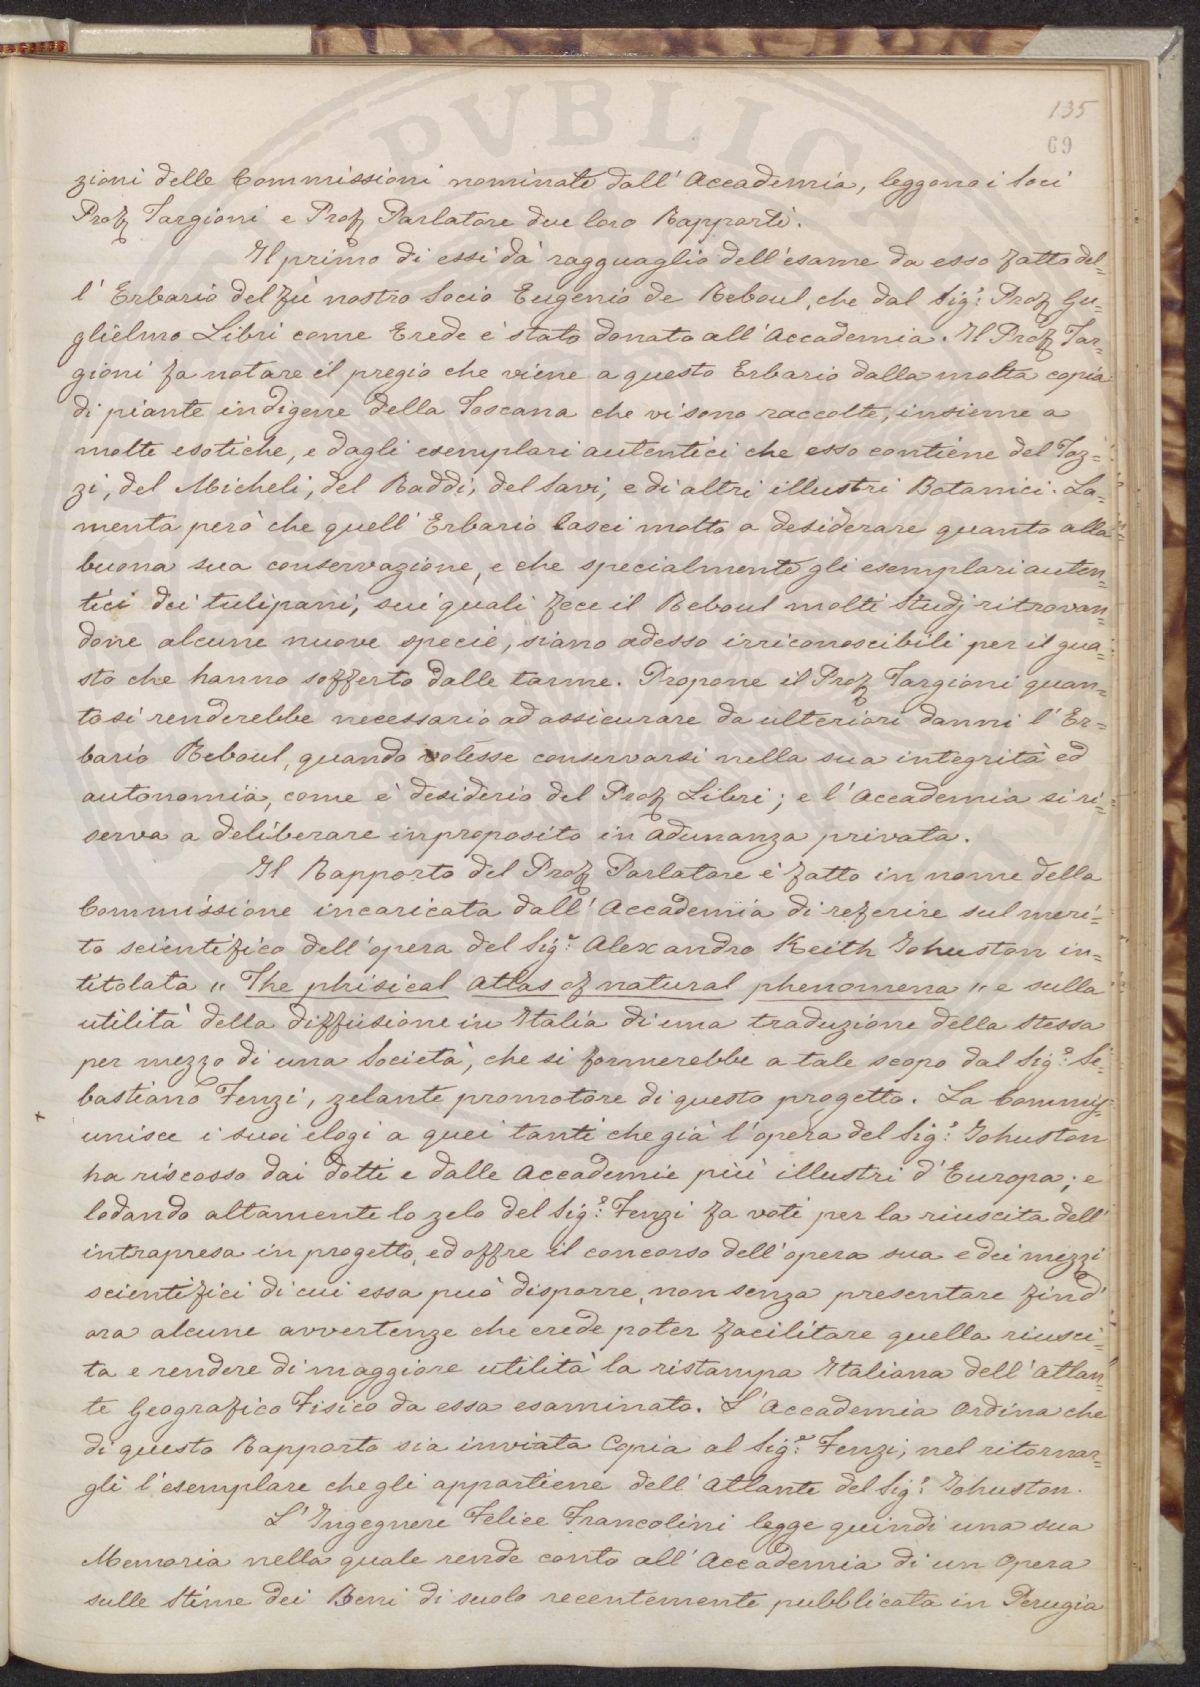 PVBLIC
135
69
zioni delle Commissioni nominate dall'Accademia, leggono i Soci
Prof Targioni e Prof Parlatore due loro Rapporti.
Il primo di essi dà ragguaglio dell'esame da esso fatto del=
l'Erbario del fù nostro Socio Eugenio de Reboul, che dal Sig.r Prof Gu=
glielmo Libri come Erede è stato donato all'Accademia. Il Prof Tar=
gioni fa notare il pregio che viene a questo Erbario dalla molta copia
di piante indigene della Toscana che vi sono raccolte, insieme a
molte esotiche, e dagli esemplari autentici che esso contiene del Toz=
zi, del Micheli, del Raddi, del Savi, e di altri illustri Botanici. La=
menta però che quell'Erbario lasci molto a desiderare quanto alla
buona sua conservazione, e che specialmente gli esemplari auten=
tici dei tulipani, sui quali fece il Reboul molti Studj ritrovan=
done alcune nuove specie, siano adesso irriconoscibili per il gua=
sto che hanno sofferto dalle tarme. Propone il Prof Targioni quan=
to si renderebbe necessario ad assicurare da ulteriori danni l'Er=
bario Reboul, quando volesse conservarsi nella sua integrità ed
autonomia, come è desiderio del Prof Libri; e l'Accademia si ri=
serva a deliberare in proposito in adunanza privata.
Il Rapporto del Prof Parlatore è fatto in nome della
Commissione incaricata dall'Accademia di referire sul meri=
to scientifico dell'opera del Sig.r Alexandro Keith Johuston in=
titolata "The phisical atlas of natural phenomena" e sulla
utilità della diffusione in Italia di una traduzione della stessa
per mezzo di una Società, che si formerebbe a tale scopo dal Sig.r Se=
bastiano Fenzi, zelante promotore di questo progetto. La Commis=
unisce i suoi elogi a quei tanti che già l'opera del Sig.r Johuston
ha riscosso dai dotti e dalle Accademie più illustri d'Europa; e
lodando altamente lo zelo del Sig.r Fenzi fa voti per la riuscita dell'
intrapresa in progetto, ed offre il concorso dell'opera sua e dei mezzi
scientifici di cui essa può disporre, non senza presentare find'
ora alcune avvertenze che crede poter facilitare quella riusci=
ta e rendere di maggiore utilità la ristampa Italiana dell'Atlan=
te Geografico Fisico da essa esaminato. L'Accademia ordina che
di questo Rapporto sia inviata Copia al Sig.r Fenzi, nel ritornar=
gli l'esemplare che gli appartiene dell'Atlante del Sig.r Johuston.
L'Ingegnere Felice Francolini legge quindi una sua
Memoria nella quale rende conto all'Accademia di un Opera
sulle Stime dei Beni di suolo recentemente pubblicata in Perugia